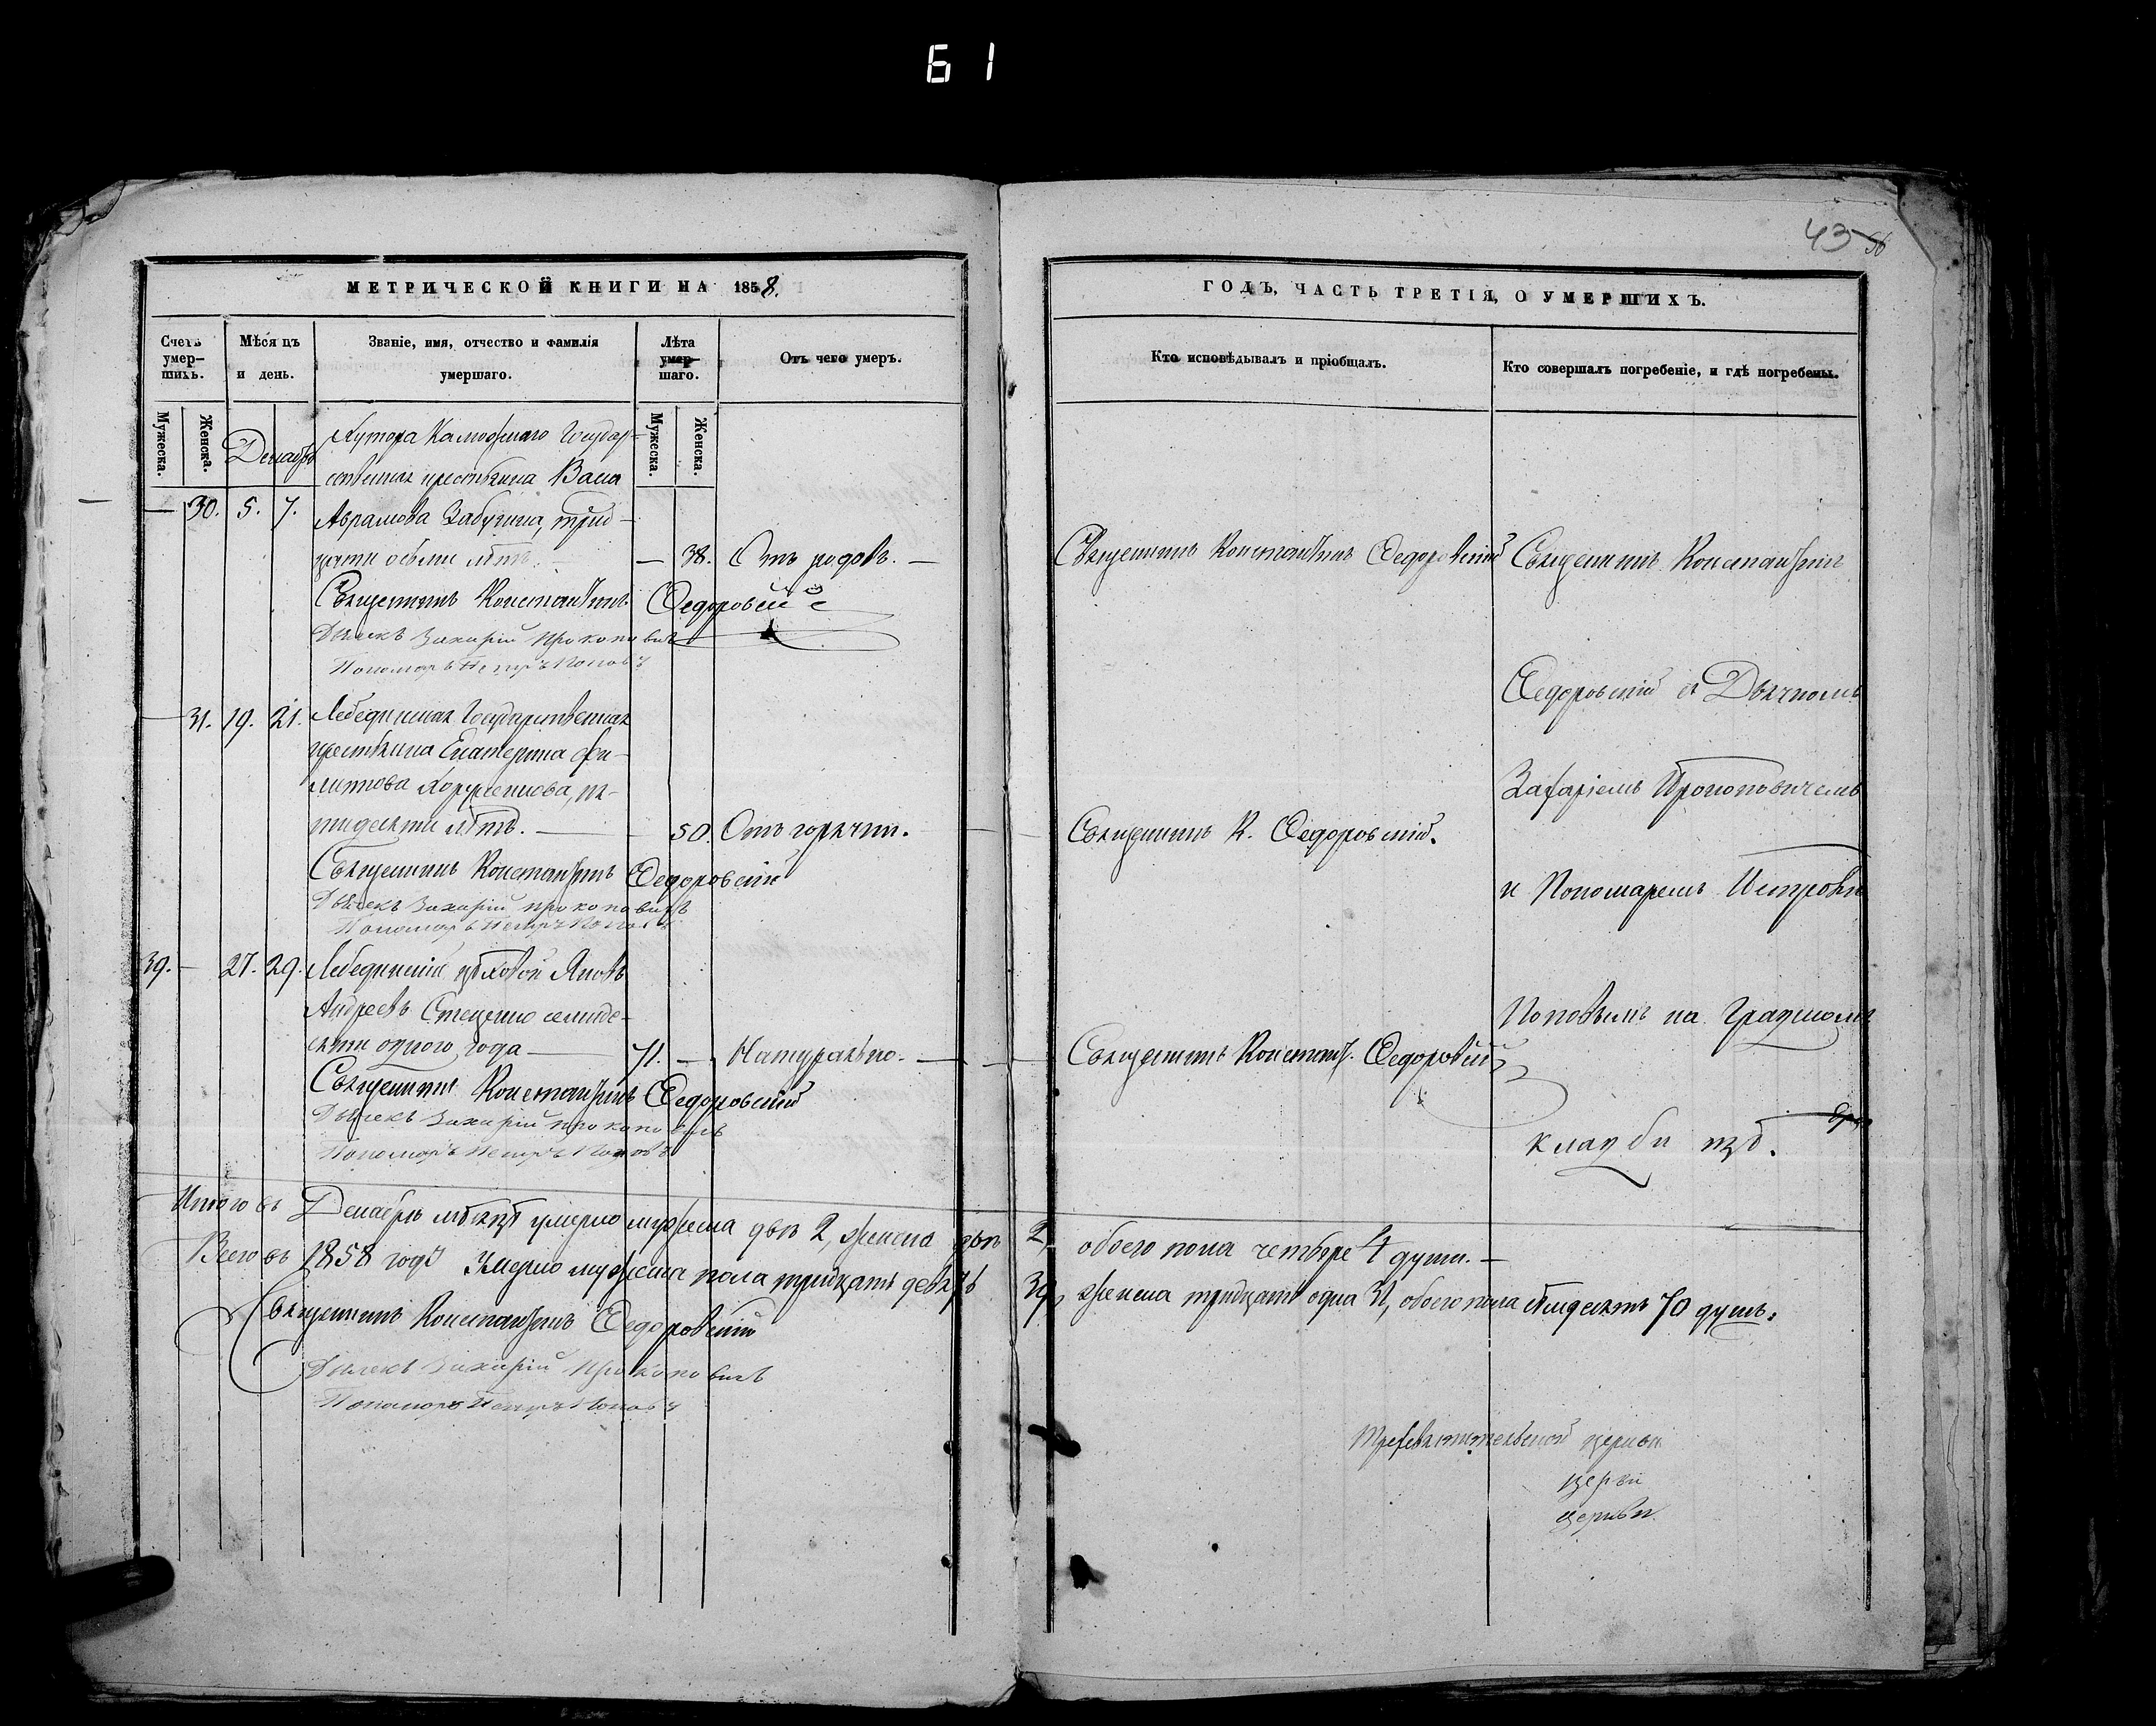 61
43 56
МЕТРИЧЕСКОЙ КНИГИ НА 1858.
ГОДЪ, ЧАСТЬ ТРЕТІЯ, О УМЕРШИХЪ.
Счетъ умер-шихъ.
Мѣсяцъ и день.
Званіе, имя, отчество и фамилія умершаго.
Лѣта умер-шаго.
Отъ чего умеръ.
Кто исповѣдывалъ и пріобщалъ.
Кто совершалъ погребеніе, и гдѣ погребены.
Мужеска.
Женска.
Декабрь
Мужеска.
Женска.
Хутора Государ-
ственная крестьянка Васса
— 30. 5. 7. Аврамова Забугина, трид-
цати осьми лѣтъ. — 38. Отъ родовъ. —
Священникъ Константинъ Ѳедоровскій
Священникъ Константинъ
Священникъ Константинъ Ѳедоровскій
Дьячекъ Захарій Прокоповичъ
Пономарь Петръ Поповъ
Ѳедоровскій съ Дьячкомъ
— 31. 19. 21. Лебединская Государственная
крестьянка Екатерина Фи-
липпова Хоруженкова, пя-
тидесяти лѣтъ. — 50. Отъ горячки.
Захаріемъ Прокоповичемъ
Священникъ К. Ѳедоровскій.
Священникъ Константинъ Ѳедоровскій
Дьячекъ Захарій Прокоповичъ
Пономарь Петръ Поповъ
и Пономаремъ Петромъ
39. — 27. 29. Лебединскій цѣховой Яковъ
Андреевъ Стеценко семиде-
сяти одного года — 71. — Натурально. —
Поповымъ на Градскомъ
Священникъ Констант. Ѳедоровскій
Священникъ Константинъ Ѳедоровскій
Дьячекъ Захарій Прокоповичъ
Пономарь Петръ Поповъ
кладбищѣ.
Итого въ Декабрѣ мѣсяцѣ умерло мужеска два 2, женска двѣ 2, обоего пола четыре 4 души. —
Всего въ 1858 годѣ умерло мужеска пола тридцать девять 39, женска тридцать одна 31, обоего пола 70 душъ.
Священникъ Константинъ Ѳедоровскій
Дьячекъ Захарій Прокоповичъ
Пономарь Петръ Поповъ
Трехсвятительской церкви
церкви